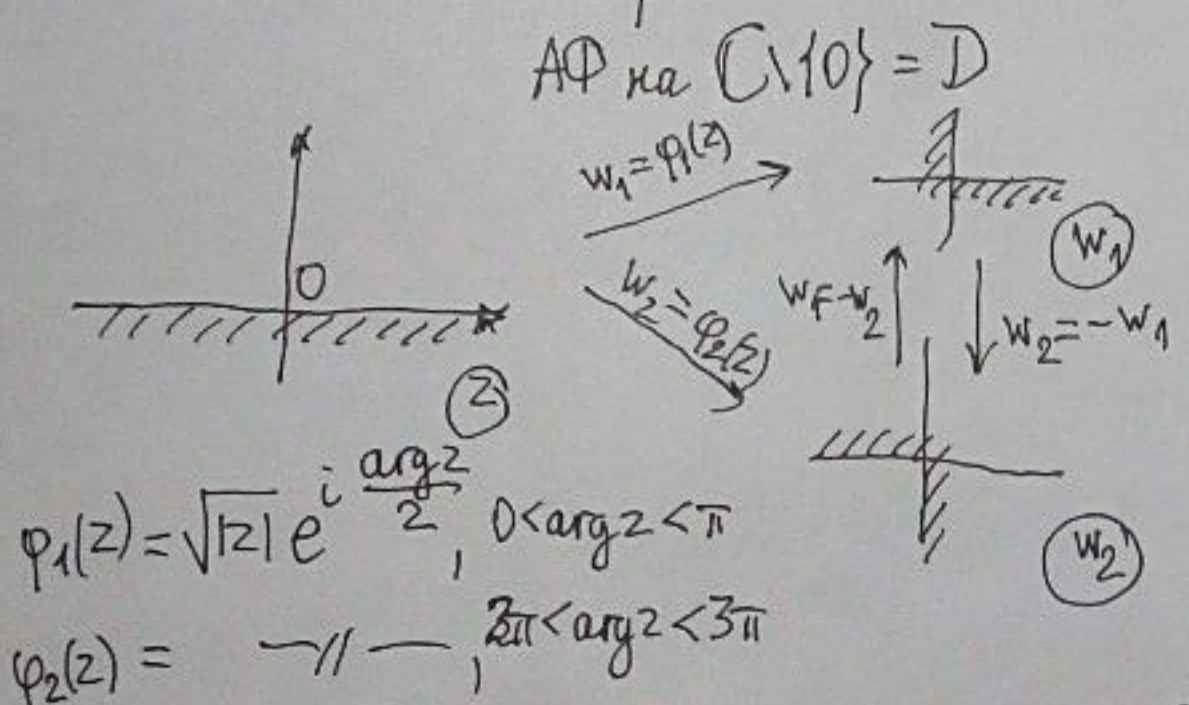 АФ на ℂ\{0} = D
w₁ = φ₁(z)
w₁
0
w₂ = φ₂(z)
w₁=-w₂
w₂ = -w₁
z
w₂
φ₁(z) = √|z| e^{i arg z / 2}, 0 < arg z < π
φ₂(z) = —//—, 2π < arg z < 3π